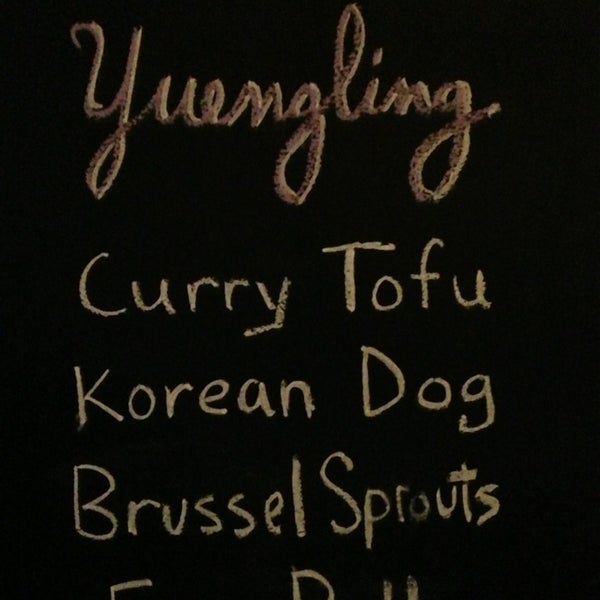 Yuengling
Curry Tofu
Korean Dog
Brussel Sprouts